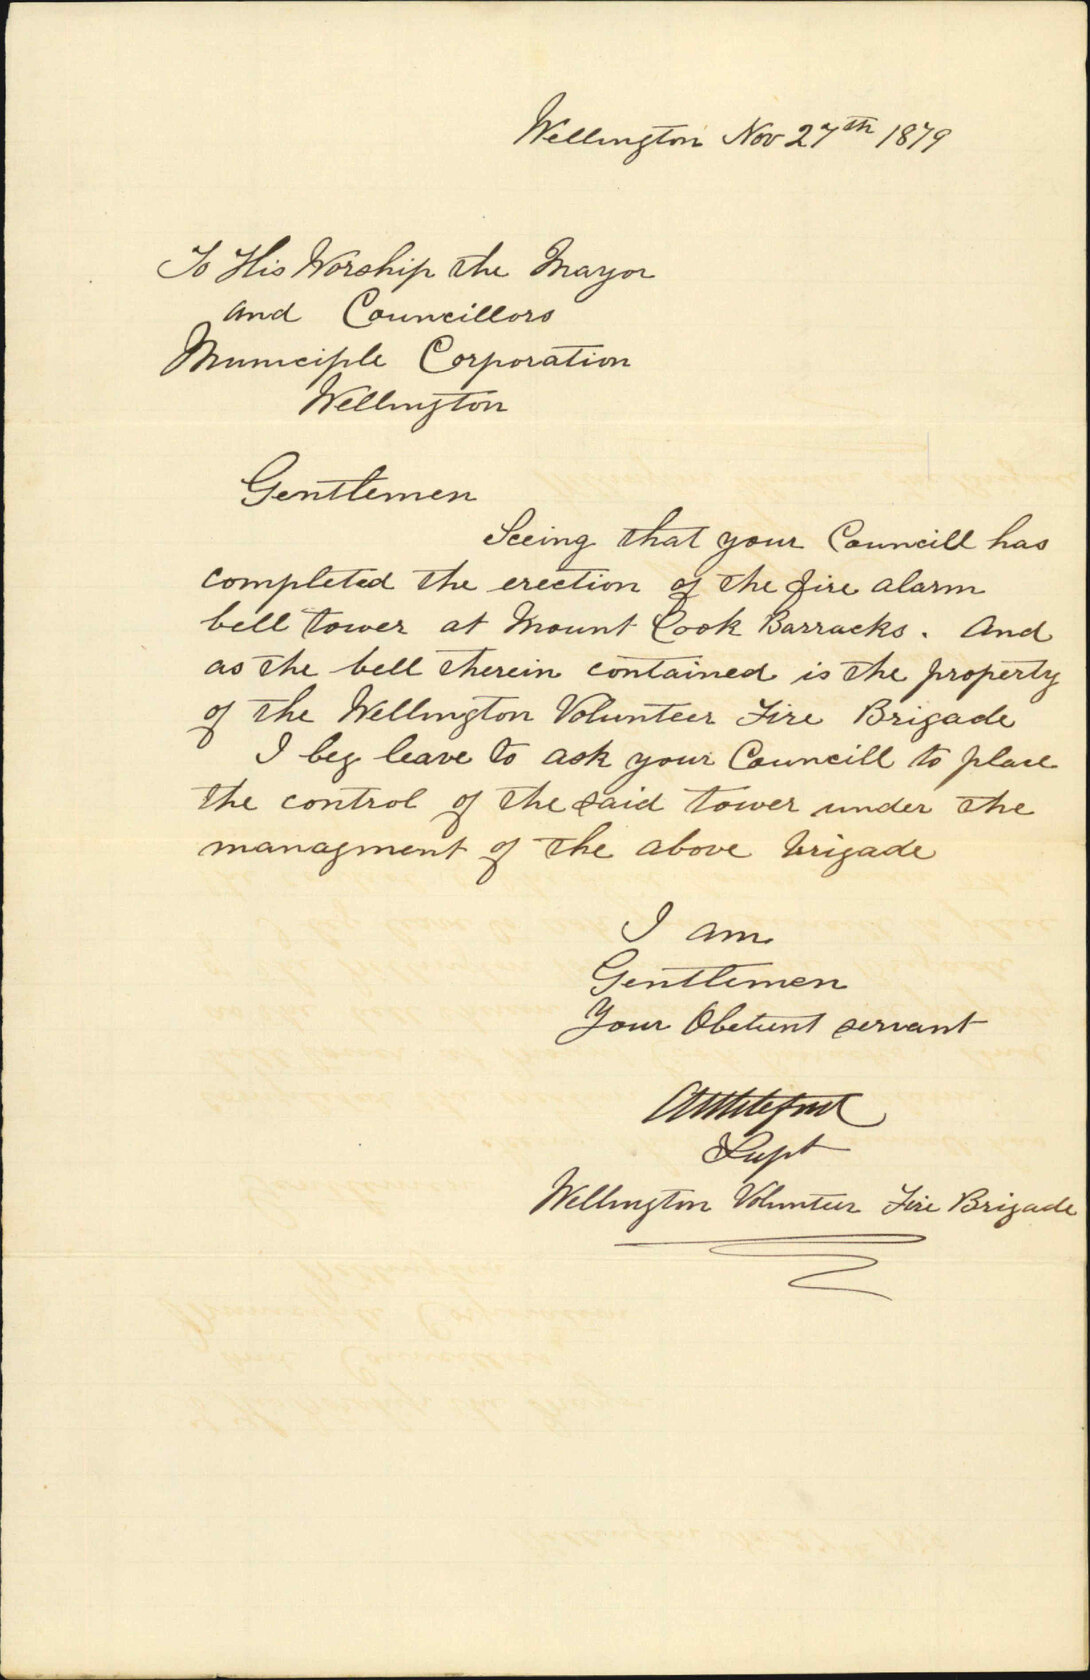 Wellington Nov 27th 1879
To His Worship the Mayor
and Councillors
Municiple Corporation
Wellington
Gentlemen
Seeing that your Councill has
completed the erection of the fire alarm
bell tower at Mount Cook Barracks. And
as the bell therein contained is the property
of the Wellington Volunteer Fire Brigade
I beg leave to ask your Councill to place
the control of the said tower under the
managment of the above brigade
I am
Gentlemen
Your Obetient servant
Supt
Wellington Volunteer Fire Brigade